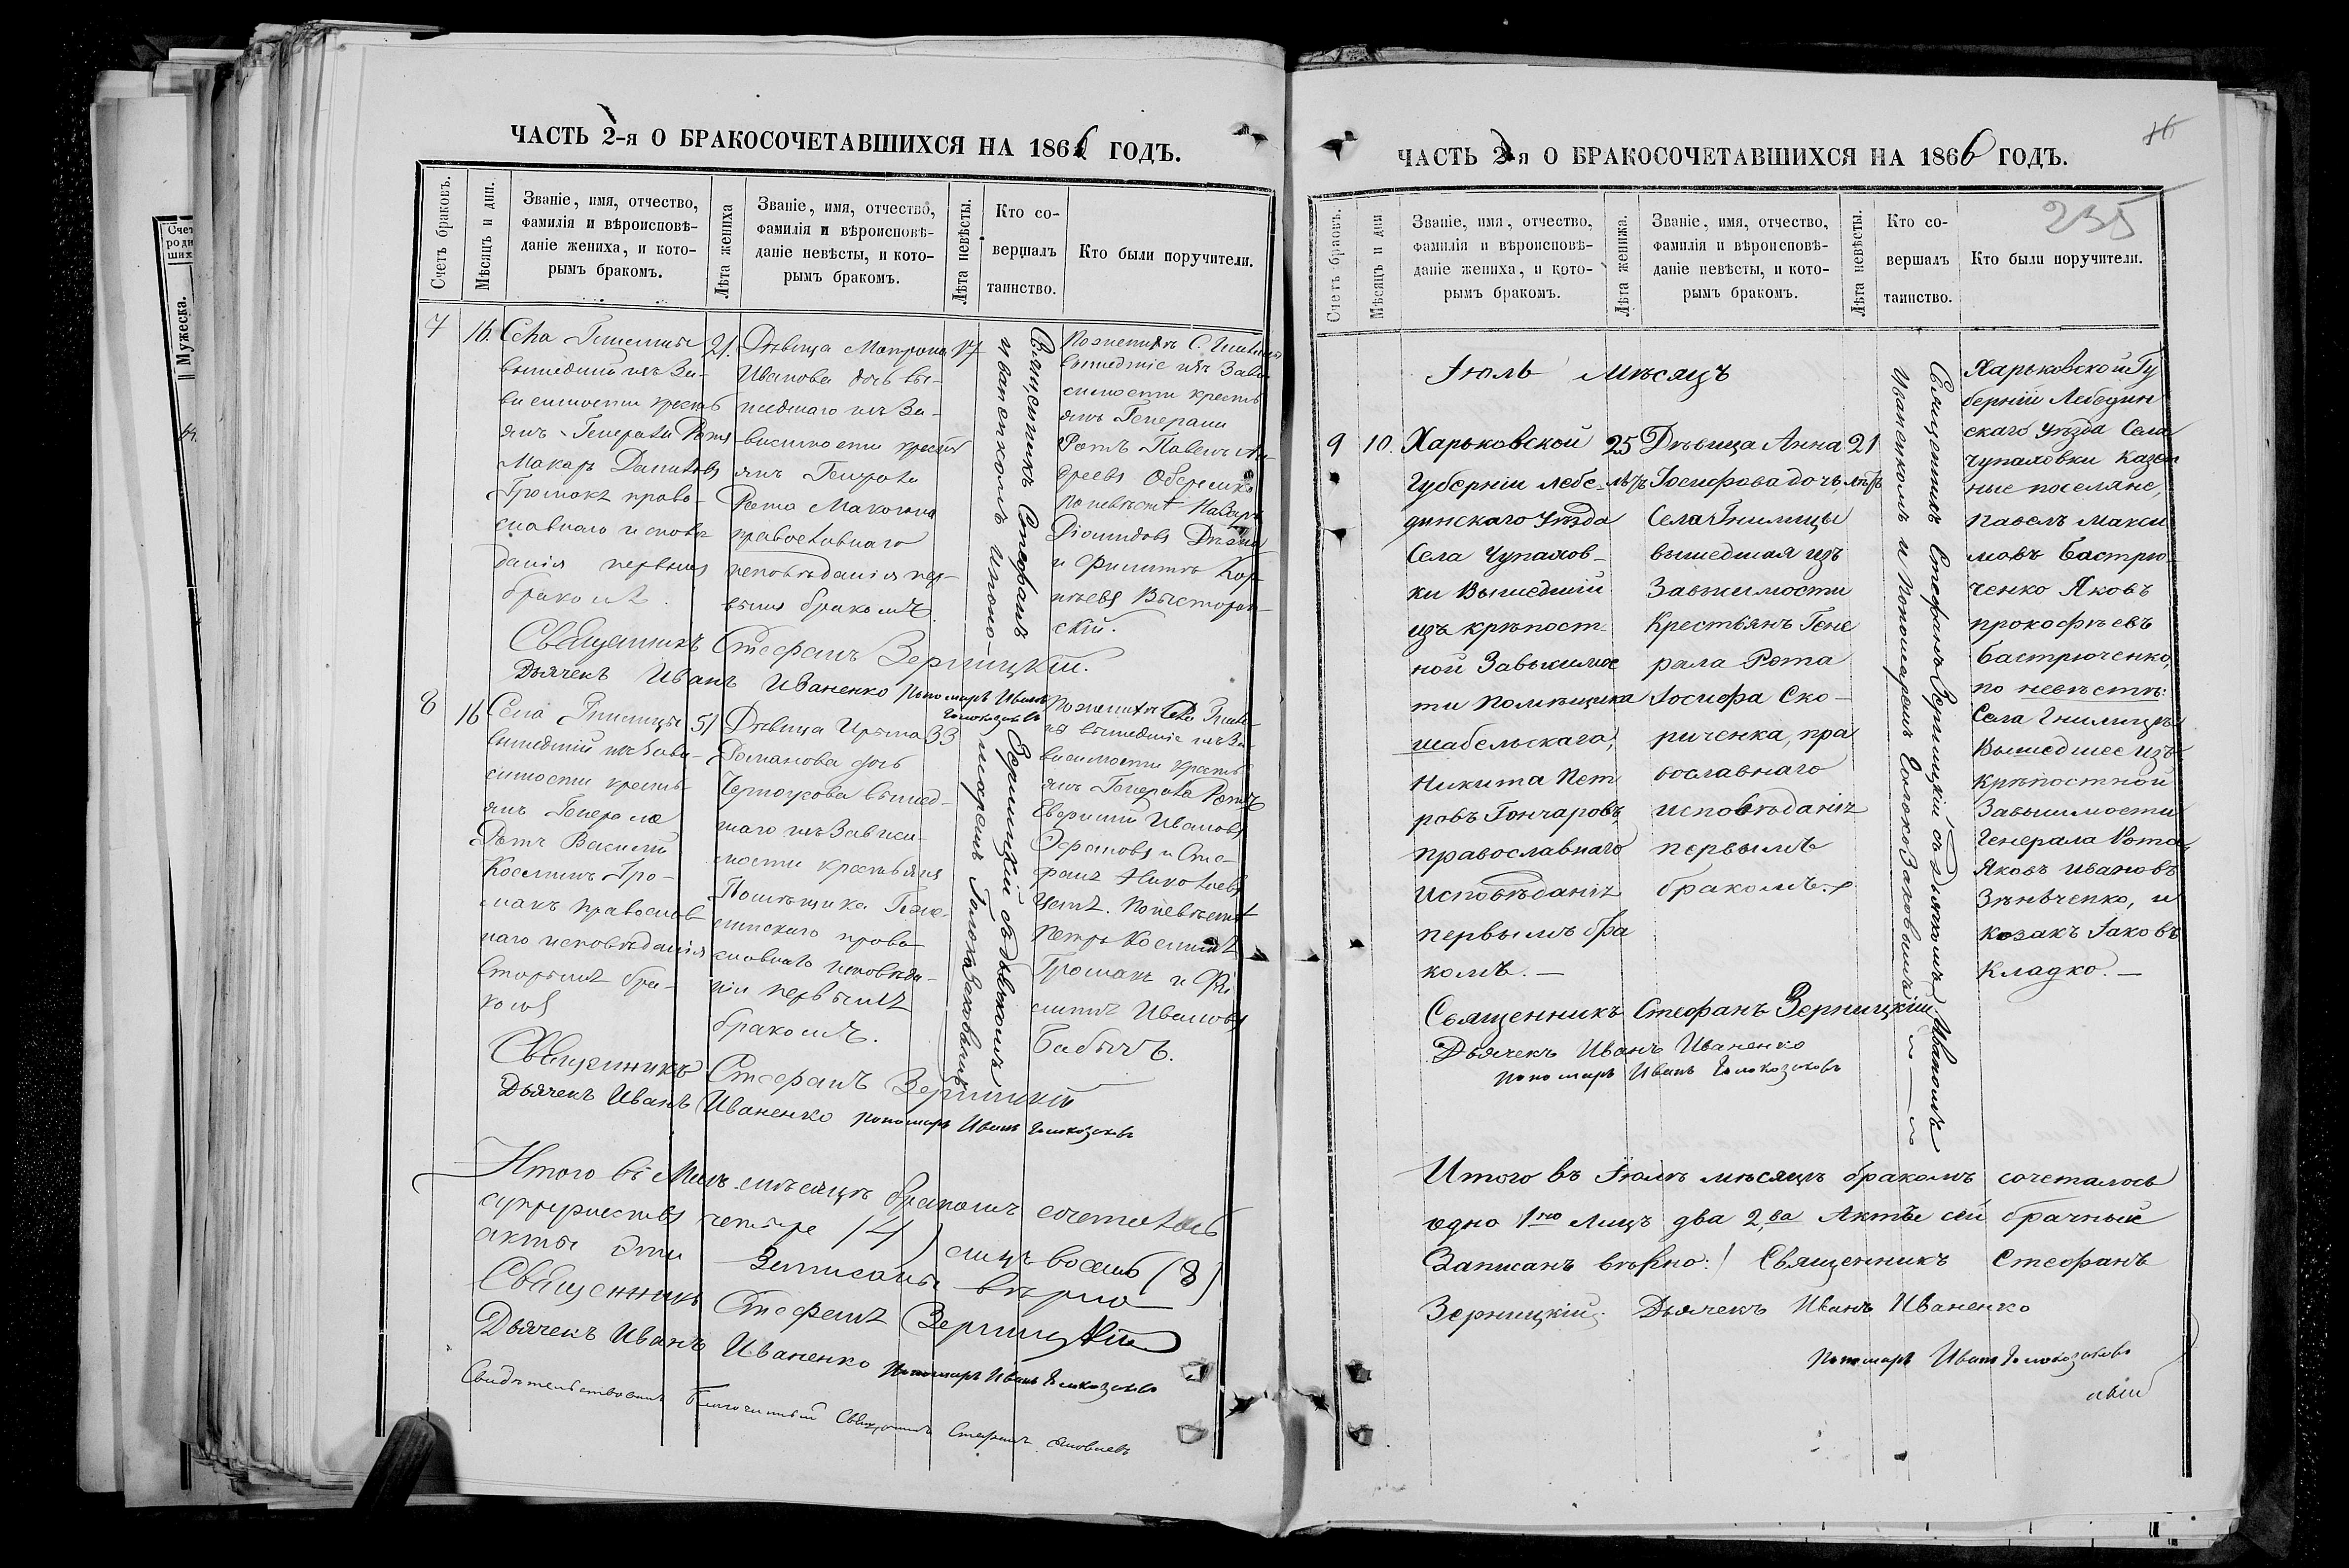 ЧАСТЬ 2-я О БРАКОСОЧЕТАВШИХСЯ НА 1866 ГОДЪ.
Счетъ браковъ.
Мѣсяцъ и дни.
Званіе, имя, отчество,
фамилія и вѣроисповѣ-
даніе жениха, и кото-
рымъ бракомъ.
Лѣта жениха
Званіе, имя, отчество,
фамилія и вѣроисповѣ-
даніе невѣсты, и кото-
рымъ бракомъ.
Лѣта невѣсты.
Кто со-
вершалъ
таинство.
Кто были поручители.
7
16.
Села Гнилицы
вышедшій изъ За-
висимости крестья
янъ Генерала Рота
Макаръ Даниловъ
Громакъ право-
славнаго исповѣ
данія первымъ
бракомъ.
21.
Дѣвица Матрона
Иванова дочь вы-
шедшаго изъ За-
висимости крестья
янъ Генерала
Рота
православнаго
исповѣданія пер-
вымъ бракомъ.
17
Священникъ Стефанъ Зерницкій съ дьячкомъ
Иваненкомъ и поно-
маремъ Голоказаковымъ
По женихѣ С. Гнилицы
вышедшіе изъ Зави
симости крестья
янъ Генерала
Ротъ Павелъ Ан-
дреевъ
По невѣстѣ
Діомидовъ
и Филиппъ Кор-
нѣевъ
скій.
Священникъ Стефанъ Зерницкій.
Дьячекъ Иванъ Иваненко пономарь Иванъ
Голоказаковъ
8
16
Села Гнилицы
вышедшій изъ Зави-
симости крестья-
янъ Генерала
Ротъ Василій
Косминъ Гро-
макъ православ
наго исповѣданія
вторымъ бра-
комъ
51
Дѣвица Ирина
Романова дочь
вышед-
шаго изъ Зависи-
мости крестьянъ
Помѣщика
право
славнаго исповѣда-
нія первымъ
бракомъ.
33
По женихѣ Села Гнили-
цы вышедшіе изъ За-
висимости крестья
янъ Генерала Ротъ
Ивановъ
и Сте-
фанъ Николаевъ
По невѣстѣ
Петръ Косминъ
Громакъ и Фи
липпъ Ивановъ
Бабичъ.
Священникъ Стефанъ Зерницкій
Дьячекъ Иванъ Иваненко пономарь Иванъ Голоказаковъ
Итого въ Маѣ мѣсяцѣ бракомъ сочеталось
супружествъ четыре (4) лицъ восемь (8)
акты эти записаны вѣрно
Священникъ Стефанъ Зерницкій
Дьячекъ Иванъ Иваненко пономарь Иванъ Голоказаковъ
Свидѣтельствовалъ Благочинный Священникъ Стефанъ
ЧАСТЬ 2-я О БРАКОСОЧЕТАВШИХСЯ НА 1866 ГОДЪ.
235
Счетъ браковъ.
Мѣсяцъ и дни
Званіе, имя, отчество,
фамилія и вѣроисповѣ-
даніе жениха, и кото-
рымъ бракомъ.
Лѣта жениха.
Званіе, имя, отчество,
фамилія и вѣроисповѣ-
даніе невѣсты, и кото-
рымъ бракомъ.
Лѣта невѣсты.
Кто со-
вершалъ
таинство.
Кто были поручители.
Іюль мѣсяцъ
9
10.
Харьковской
Губерніи Лебе-
динскаго Уѣзда
Села Чупахов-
ки Вышедшій
изъ крѣпост-
ной Завысимос
ти Помѣщика
шабельскаго,
Никита Пет
ровъ Гончаровъ,
православнаго
исповѣданія
первымъ бра
комъ.—
25
лѣтъ
Дѣвица Анна
Іосифова дочь,
Села Гнилицы
вышедшая изъ
Завысимости
Крестьянъ Гене
рала Рота
Іосифа Ско-
риченка, пра
вославнаго
исповѣданія
первымъ
бракомъ.
21
лѣтъ
Священникъ Стефанъ Зерницкій съ Дьячкомъ Иваномъ
Иваненкомъ и Пономаремъ Голоказаковымъ
Харьковской Гу
берніи Лебедин
скаго уѣзда Села
Чупаховки Казен
ные поселяне,
Павелъ Макси
мовъ Бастрю
ченко Яковъ
прокофіевъ
Бастрюченко,
по невѣстѣ:
Села Гнилицы
Вышедшее изъ
Крѣпостной
Завысимости
Генерала Рота,
Яковъ Ивановъ
Зѣнченко, и
Козакъ Іаковъ
Кладко.—
Священникъ Стефанъ Зерницкій
Дьячекъ Иванъ Иваненко
пономарь Иванъ Голоказаковъ
Итого въ Іюлѣ мѣсяцѣ бракомъ сочеталось
одно 1но лицъ два 2,ва Актъ сей брачный
Записанъ вѣрно:/ Священникъ Стефанъ
Зерницкій. Дьячекъ Иванъ Иваненко
Пономарь Иванъ Голоказаковъ